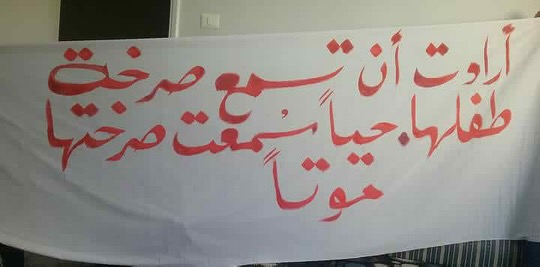 أرادت أن تسمع صرخة
طفلها. حياً سُمعت صرختها
موتاً